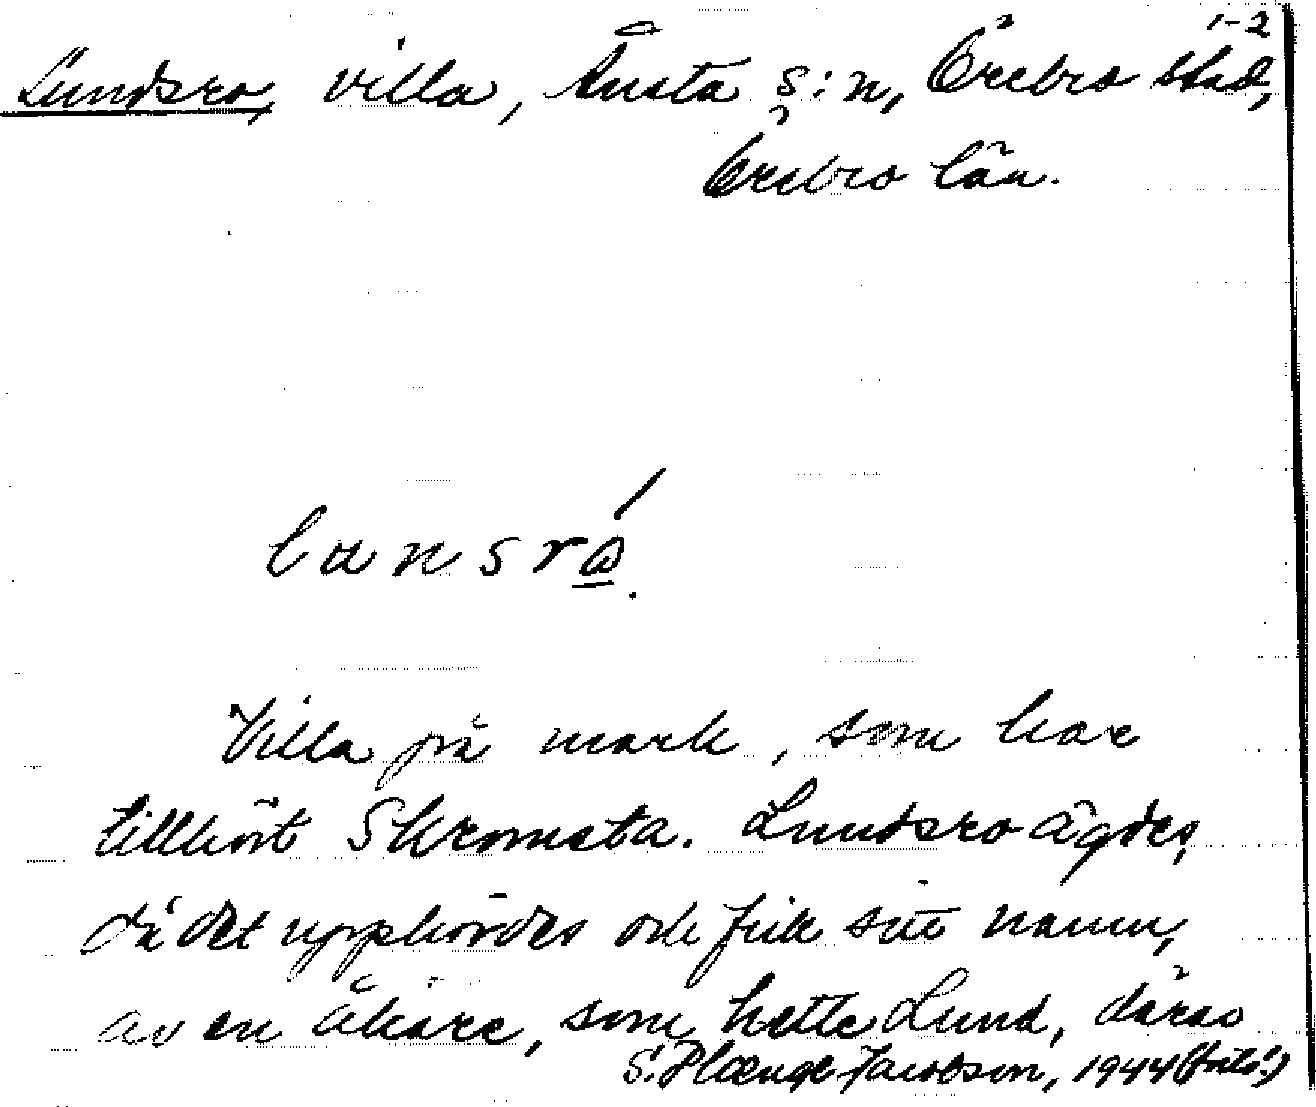 1-2
Lundsro, villa, Ånsta s:n, Örebro stad,
Örebro län.
lunsró.
Villa på mark, som har
tillhört Skromsta. Lundsro ägdes,
då det uppbördes och fick sitt namn,
av en åkare, som hette Lund, därav
S. Plænge Jacobson, 1944 (forts.)